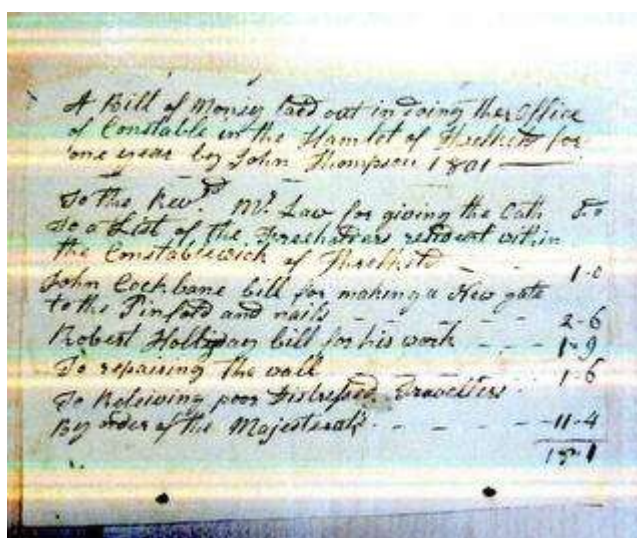 A Bill of Money laid out in doing the Office
of Constable in the Hamlet of Threlkeld for
one year by John Thompson 1801
To the Revd. Mr. Law for giving the Oath
To a List of the Freeholders resident within
the Constablewick of Threlkeld - - 1-0
John Cockbane bill for making a New gate
to the Pinfold and nails - - - - - 2-6
Robert Holliday bill for his work - - - 1-9
To repairing the wall - - - 1-6
To Releiving poor Distressed Travellers
By order of the Majestrates - - - - 11-4